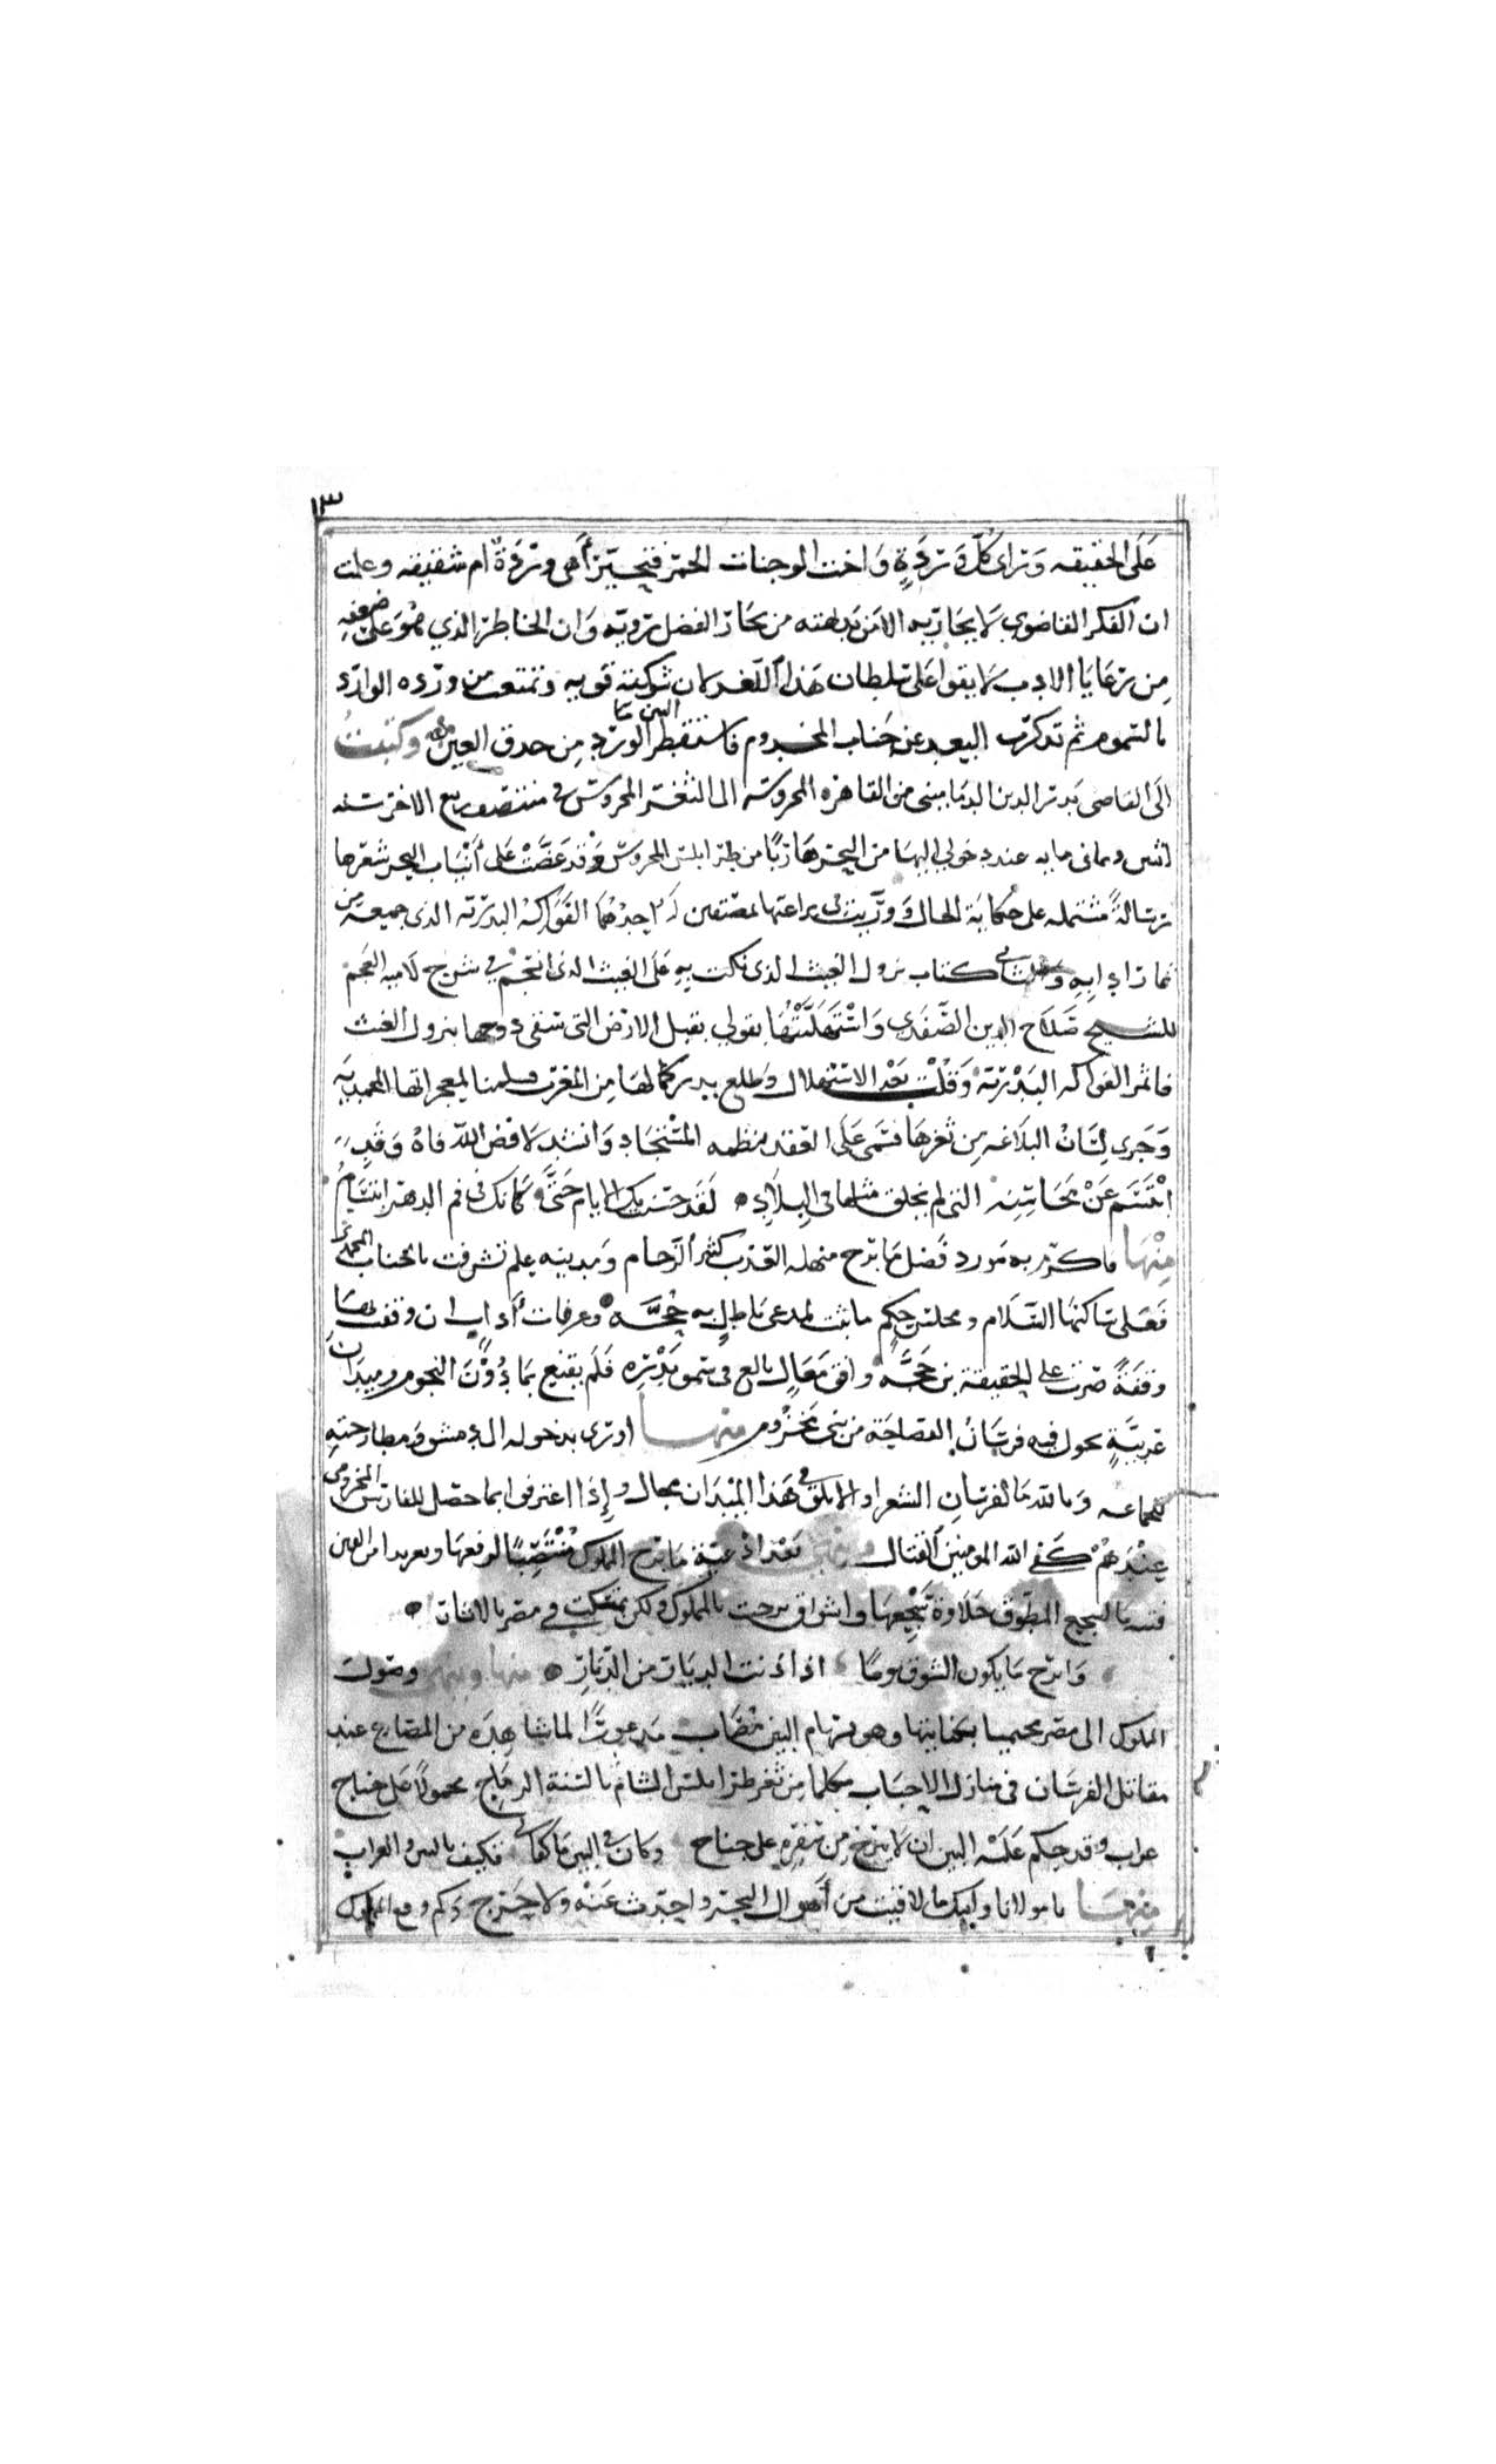 ١٣
على الحقيقه وتراى كل وردة واخت الوجنات الحمر فتحير أهي وردة ام شقيقه وعلمت
ان الفكر القاضوي لا يجاريه الا من بداهته من بحار الفضل رويه وان الخاطر الذي هو على ضعفه
من رعايا الادب لا يقوا على سلطان هذا اللغز لان شوكته قويه وتمتعت من ورده الوارد
بالشموم ثم تذكرت البعد عن جناب المخدوم فاستقطر البين ما الورد من حدق العين وكتبت
الى القاضى بدر الدين الدماميني من القاهره المحروسه الى الثغر المحروس في منتصف ربيع الاخر سنه
اثنين وثماني مايه عند دخولي اليها من البحر هاربا من طرابلس المحروس وقد عضت على أنياب البحر ثغرها
رسالةً مشتمله على حكاية الحال ووريت في براعتها بمصنفين له احدهما الفواكه البدريه الذى جمعه من
ثمار ادابه والثاني كتاب نزول الغيث الذى نكت به على الغيث الذى انسجم في شرح لاميه العجم
للشيخ صلاح الدين الصفدي واستهلّيتها بقولي يقبل الارض التي سقى دوحها بنزول الغيث
فاثمر الفواكه البدريّة وقلت بعد الاستهلال وطلع بدر كمالها من المغرب فسلمنا لمعجزاتها المحمديه
وجرى لسان البلاغه من ثغرها فسمى على العقد بنظمه المستجاد وانشد لا فض الله فاهُ وقد
ابتسم عن محاسنه التي لم يخلق مثلها في البلاد لقد حسنت بك الايام حتى كانك في فم الدهر ابتسامُ
منها فاكرم به مورد فضل ما برح منهله العذب كثير الزحام ومدينه علم تشرفت بالجناب المحمدي
فعلى ساكنها السلام ومجلس حكم ما ثبت لمدعى باطل به حُجَّه وعرفات أداب ان وقفت بها
وقفةً صرت على الحقيقة بن حجَّه وافق معالٍ بالع في سمو بدره فلم يقنع بما دون النجوم وميدان
عربيّةٍ يجول فيه فرسان الفصاحة من بني مخزوم منها ورى بدخوله الى دمشق ومطارحته
للجماعه وما لله ما لفرسان الشعرا والابلق في هذا الميدان مجال وإذا اعترفوا بما حصل للفارس المخزومي
عندهم كفى الله المومنين القتال بعد ادعيةٍ ما برح المملوك منتصبًا لرفعها وتعريدا من العين
فنسيا السجع المطوق حلاوة سجعها واشواق برحت بالمملوك ولكن تمسكت في مصر بالاثار
وابرح ما يكون الشوق يومًا اذا دنت الديار من الديارِ منها وينهى وصول
المملوك الى مصر محتميا بكنانتها وهو بسهام البين مصاب مذعورًا لما شاهده من المصارع عند
مقاتل الفرسان في منازل الاحباب مكلما من ثغر طرابلس الشام بالسنة الرماح محمولا على جناح
غراب وقد حكم عليه البين ان لا يبرح من سفره على جناح وكان في البين ما كفاني فكيف بالبين والغراب
منها يا مولانا وابثك ما لاقيت من أهوال البحر واحدث عنه ولا حرج فكم وقع المملوك